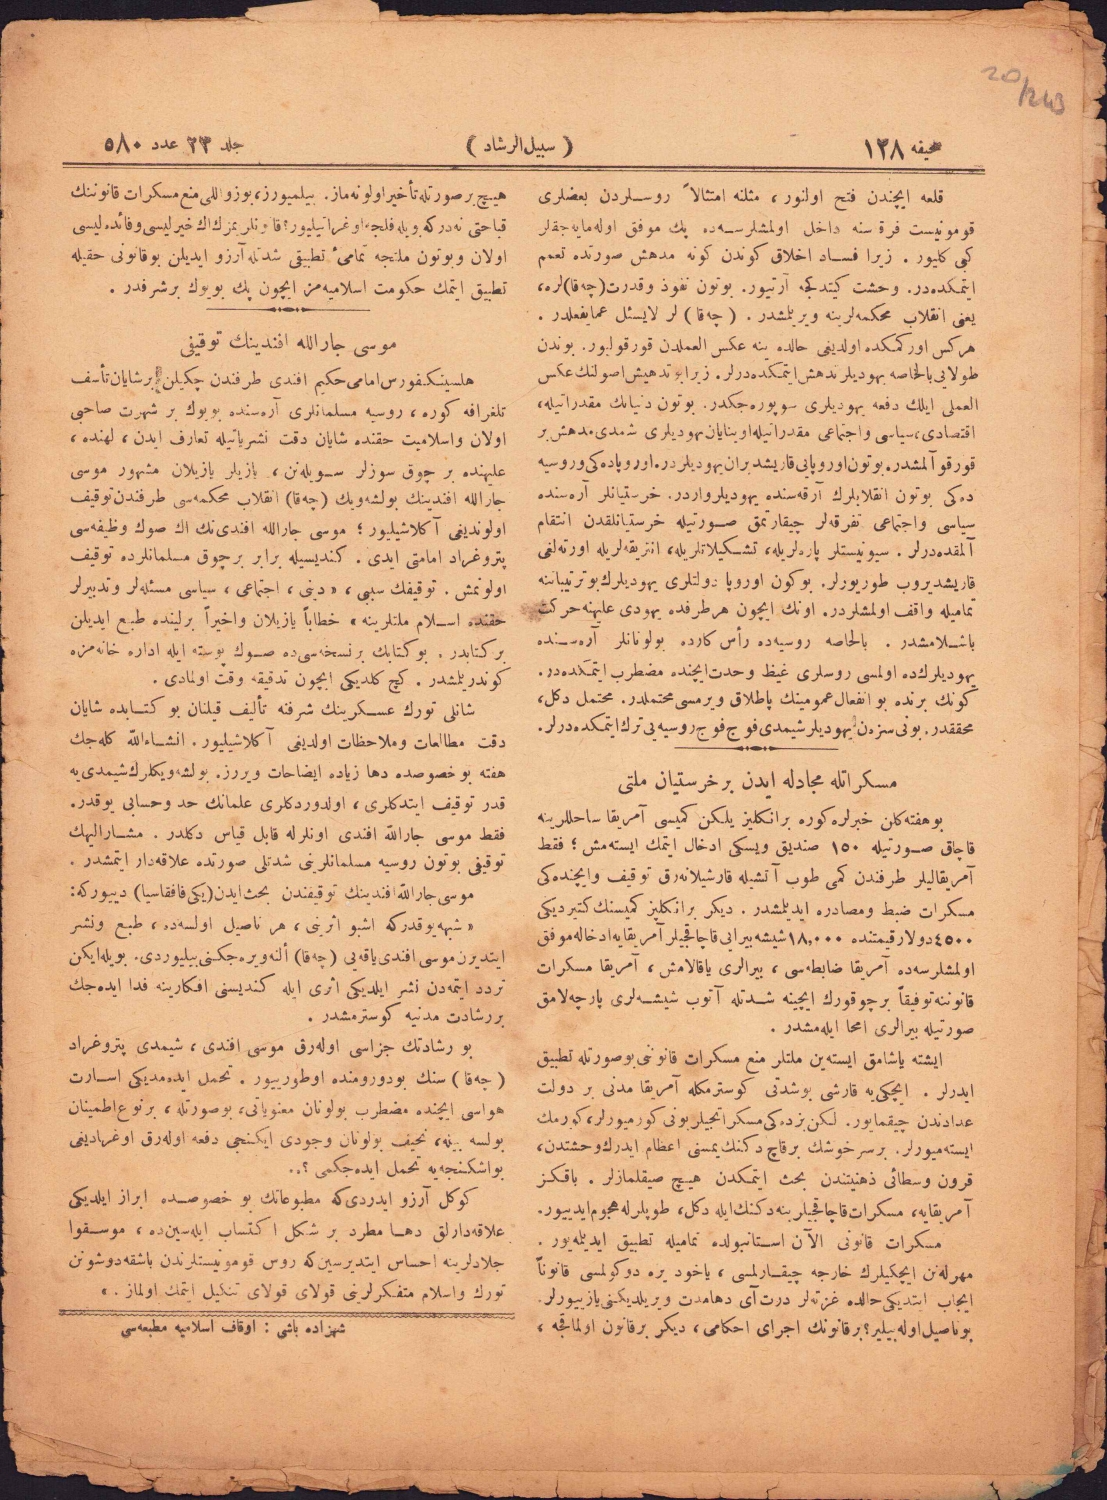 صحیفه ۱۳۸
( سبیل‌الرشاد )
جلد ۲۳ عدد ۵۸۰
قلعه ایچندن فتح اولنور ، مثلنه امتثالاً روسـلردن بعضلری
قومونیست فرقه‌سنه داخل اولمشلرسه‌ده پك موفق اوله‌مایه‌جقلر
كبی كلیور . زیرا فسـاد اخلاق كوندن كونه مدهش صورتده تعمم
ایتمكده‌در. وحشت كیتدكجه آرتیور. بوتون نفوذ وقدرت (چه‌قا)لره،
یعنی انقلاب محكمه‌لرینه ویریلمشدر . ( چه‌قا ) لر لایسئل عمایفعلدر .
هركس اوركمكده اولدیغی حالده ینه عكس العملدن قورقولیور. بوندن
طولایی بالخاصه یهودیلر تدهش ایتمكده‌درلر. زیرا بو تدهیش اصولنك عكس
العملی ایلك دفعه یهودیلری سوپوره‌جكدر. بوتون دنیانك مقدراتیله،
اقتصادی، سیاسی واجتماعی مقدراتیله اوینایان یهودیلری شمدی مدهش بر
قورقو آلمشدر. بوتون اوروپایی قاریشدیران یهودیلردر. اوروپاده‌كی وروسیه
ده‌كی بوتون انقلابلرك آرقه‌سنده یهودیلر واردر. خرستیانلر آره‌سنده
سیاسی واجتماعی تفرقه‌لر چیقارتمق صـورتیله خرستیانلقدن انتقام
آلمقده‌درلر . سیونیستلر پاره‌لریله، تشـكیلاتلریله، انتریقه‌لریله اورته‌لغی
قاریشدیروب طوریورلر. بوكون اوروپا دولتلری یهودیلرك بو ترتیباتنه
تمامیله واقف اولمشلردر. اونك ایچون هر طرفده یهودی علیهنه حركت
باشـلامشدر . بالخاصه روسیه‌ده رأس كارده بولونانلر آره‌سـنده
یهودیلرك‌ده اولمسی روسلری غیظ وحدت ایچنده مضطرب ایتمكده‌در.
كونك برنده بو انفعال عمومینك پاطلاق ویرمسی محتملدر. محتمل دكل،
محققدر. بونی سزه‌ن یهودیلر شیمدی فوج فوج روسیه‌یی ترك ایتمكده‌درلر.
مسكراتله مجادله ایدن بر خرستیان ملتی
بو هفته كلن خبرلره كوره بر انكلیز یلكن كمیسی آمریقا ساحللرینه
قاچاق صـورتیله ۱۵۰ صندیق ویسكی ادخال ایتمك ایسته‌مش ؛ فقط
آمریقالیلر طرفندن كمی طوپ آتشیله قارشیلانه‌رق توقیف وایچنده‌كی
مسكرات ضبط ومصادره ایدیلمشدر . دیكر بر انكلیز كمیسنك كتیردیكی
۴۵۰۰ دولار قیمتنده ۱۸,۰۰۰ شیشه بیرایی قاچاقجیلر آمریقایه ادخاله موفق
اولمشلرسه‌ده آمریقا ضابطه‌سی ، بیرالری یاقالامش ، آمریقا مسكرات
قانوننه توفیقاً بر چوقورك ایچینه شـدتله آتوب شیشـه‌لری پارچه‌لامق
صورتیله بیرالری امحا ایله‌مشدر .
ایشته یاشامق ایسته‌ین ملتلر منع مسكرات قانوننی بو صورتله تطبیق
ایدرلر . ایچكی‌یه قارشی بو شدتی كوسترمكله آمریقا مدنی بر دولت
عدادندن چیقمایور. لكن بزده‌كی مسكراتجیلر بونی كورمیورلر، كورمك
ایسته‌میورلر. بر سرخوشك بر قاچ دكنك یمسنی اعظام ایدرك وحشتدن،
قرون وسطائی ذهنیتندن بحث ایتمكدن هیچ صیقلمازلر . باقكز
آمریقایه، مسكرات قاچاقجیلرینه دكنك ایله دكل، طوپلرله هجوم ایدییور.
مسكرات قانونی الآن اسـتانبولده تمامیله تطبیق ایدیله‌یور .
مهرله‌نن ایچكیلرك خارجه چیقـارلمسی ، یاخود یره دوكولمسی قانوناً
ایجاب ایتدیكی حالده غزته‌لر درت آی دها مدت ویریلدیكنی یازییورلر.
بو ناصیل اوله بیلیر؟ بر قانونك اجرای احكامی، دیكر بر قانون اولمادقجه ،
هیـچ بر صورتله تأخیر اولونه‌ماز. بیلمیورز، بو زواللی منع مسكرات قانوننك
قباحتی نه‌در كه بویله فلجه اوغراتیلیور؟ قانونلریمزك اك خیرلیسی وفائده‌لیسی
اولان وبوتون ملتجه تمامئ تطبیقی شدتله آرزو ایدیلن بو قانونی حقیله
تطبیق ایتمك حكومت اسلامیه‌مز ایچون پك بویوك بر شرفدر .
موسی جارالله افندینك توقیفی
هلسینكفورس امامی حكیم افندی طرفندن چكیلن بر شایان تأسف
تلغرافه كوره ، روسیه مسلمانلری آره‌سنده بویوك بر شهرت صاحبی
اولان واسلامیت حقنده شایان دقت نشریاتیله تعارف ایدن ، لهنده ،
علیهنده بر چوق سوزلر سـویله‌نن ، یازیلر یازیلان مشهور موسی
جارالله افندینك بولشه‌ویك (چه‌قا) انقلاب محكمه‌سی طرفندن توقیف
اولوندیغی آكلاشیلیور ؛ موسی جارالله افندی‌نك اك صوك وظیفه‌سی
پتروغراد امامتی ایدی . كندیسیله برابر بر چوق مسلمانلرده توقیف
اولونمش . توقیفك سببی ، « دینی ، اجتماعی ، سیاسی مسئله‌لر وتدبیرلر
حقنده اسـلام ملتلرینه » خطاباً یازیلان واخیراً برلینده طبع ایدیلن
بر كتابدر . بو كتابك بر نسخه‌سی‌ده صـوك پوسته ایله اداره خانه‌مزه
كوندریلمشدر . كچ كلدیكی ایچون تدقیقه وقت اولمادی .
شانلی تورك عسـكرینك شرفنه تألیف قیلنان بو كتـابده شایان
دقت مطالعات وملاحظات اولدیغی آكلاشیلیور. انشـاءالله كله‌جك
هفته بو خصوصده دها زیاده ایضاحات ویررز. بولشه‌ویكلرك شیمدی‌یه
قدر توقیف ایتدكلری ، اولدوردكلری علمانك حد وحسابی یوقدر.
فقط موسی جارالله افندی اونلرله قابل قیاس دكلدر . مشـارالیهك
توقیفی بوتون روسیه مسلمانلرینی شدتلی صورتده علاقه‌دار ایتمشدر .
موسی جارالله افندینك توقیفندن بحث ایدن (یكی قافقاسیا) دییور كه:
« شبهه یوقدر كه اشبو اثرینی ، هر ناصیل اولسه‌ده ، طبع ونشر
ایتدیرن موسی افندی یاقه‌یی (چه‌قا) ألنه ویره‌جكنی بیلیوردی. بویله ایكن
تردد ایتمه‌دن نشر ایلدیكی اثری ایله كندیسنی افكارینه فدا ایده‌جك
بر رشادت مدنیه كوسترمشدر .
بو رشادتك جزاسی اوله‌رق موسی افندی ، شیمدی پتروغراد
( چه‌قا ) سنك بودورومنده اوطورییور . تحمل ایده‌مدیكی اسـارت
هواسی ایچنده مضطرب بولونان معنویاتی، بو صورتله ، بر نوع اطمینان
بولسه بیله، نحیف بولونان وجودی ایكنجی دفعه اوله‌رق اوغرادیغی
بو اشكنجه‌یه تحمل ایده‌جكمی ؟..
كوكل آرزو ایدردی كه مطبوعاتك بو خصوصـده ابراز ایلدیكی
علاقه‌دارلق دهـا مطرد بر شكل اكتساب ایله‌سین‌ده ، موسـقوا
جلادلرینه احساس ایتدیرسین كه روس قومونیستلرندن باشقه دوشونن
تورك واسلام متفكرلرینی قولای قولای تنكیل ایتمك اولماز . »
شهزاده باشی : اوقاف اسلامیه مطبعه‌سی